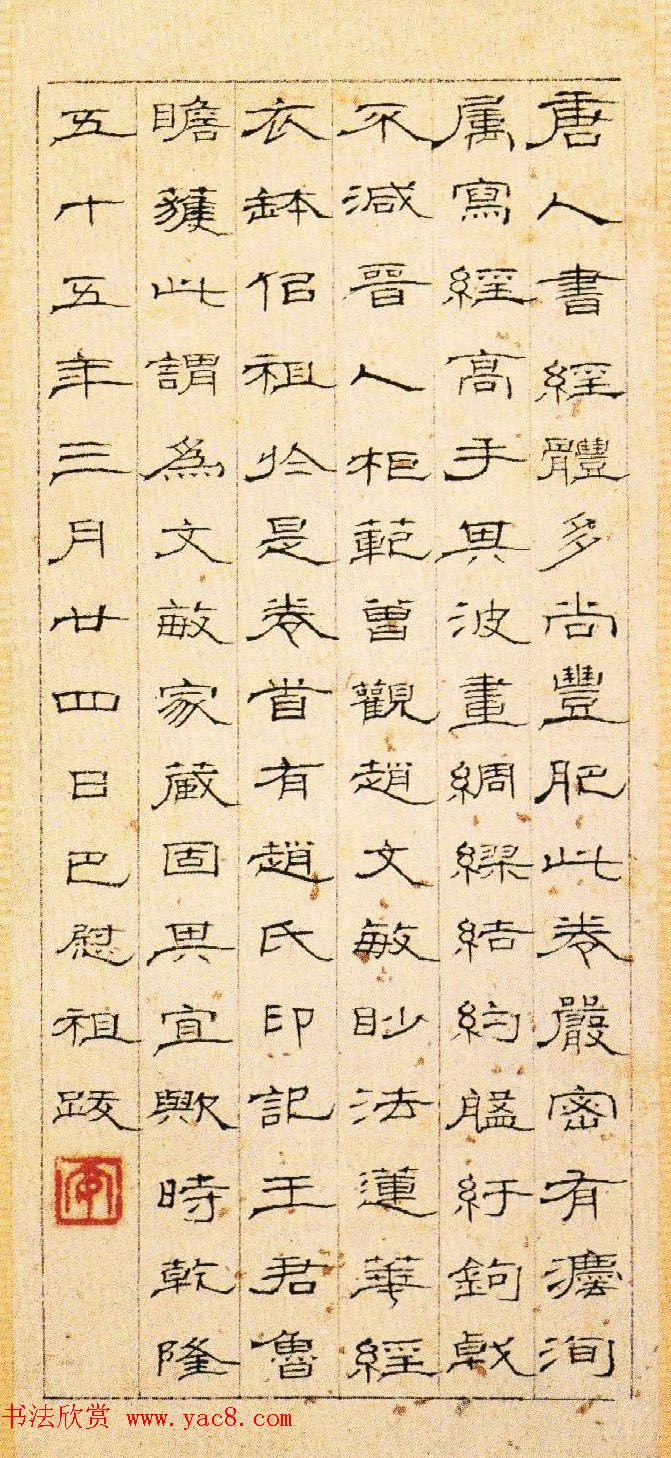 唐人書經體多尚豐肥此卷嚴密有灋洵
属寫經高手其波畫綢繆結約紆鉤戟
不減晉人柜範曾觀趙文敏眇法蓮華經
衣缽侣祖於是卷首有趙氏印記王君魯
瞻獲此謂為文敏家蔵固其宜歟時乾隆
五十五年三月廿四日巴慰祖跋
书法欣赏 www.yac8.com